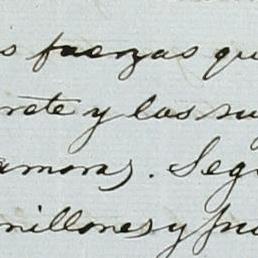 s fuerzas qu
rete y las su
amoras. Seg
millones y fu